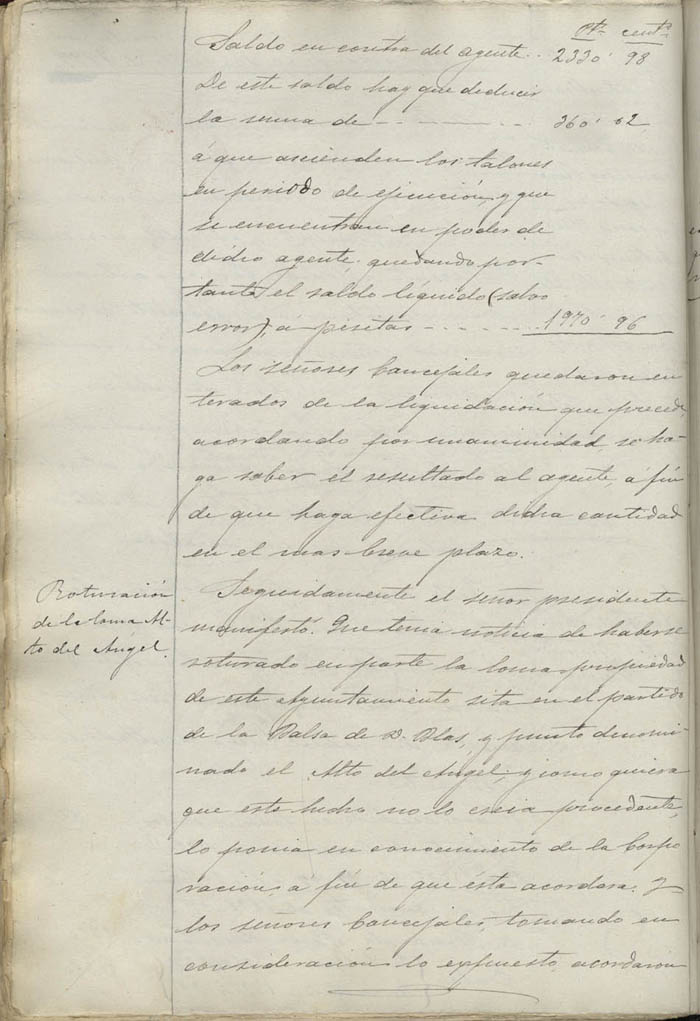 Pts centˢ
Saldo en contra del agente.. 2330' 98
De este saldo hay que deducir
la suma de - - - - - - - 360' 02
á que ascienden los talones
en periodo de ejecución, y que
se encuentran en poder de
dicho agente; quedando por-
tanto el saldo líquido (salvo
error), á pesetas - - - - - 1970' 96
Los señores Concejales quedaron en
terados de la liquidación que precede,
acordando por unanimidad, se ha-
ga saber el resultado al agente, á fin
de que haga efectiva dicha cantidad
en el mas breve plazo.
Roturación
de la loma Al-
to del Ángel.
Seguidamente el señor presidente
manifestó: Que tenia noticia de haberse
roturado en parte la loma propiedad
de este Ayuntamiento sita en el partido
de la Balsa de D. Blas, y punto denomi
nado el Alto del Angel; y como quiera
que este hecho no lo creia procedente,
lo ponia en conocimiento de la Corpo
ración, á fin de que ésta acordara. Y
los señores Concejales, tomando en
consideración lo expuesto, acordaron